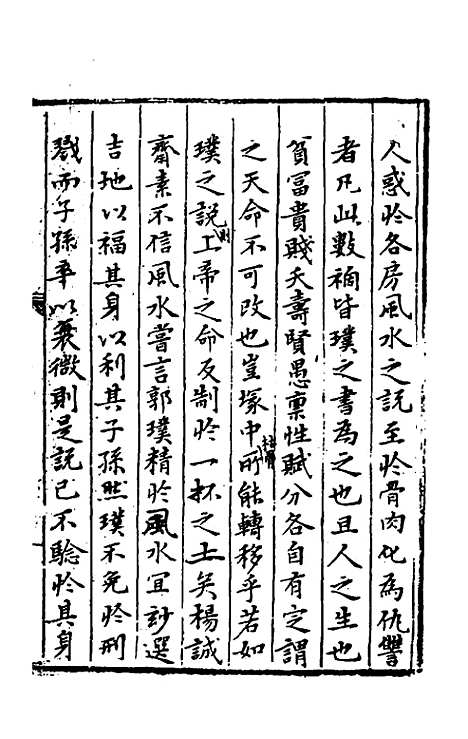 人惑於各房風水之説至於骨肉化為仇讐
者凡此數禍皆璞之書為之也且人之生也
貧冨貴賤夭壽賢愚稟性賦分各自有定謂
之天命不可改也豈塚中枯骨所能轉移乎若如
璞之説則上帝之命反制於一抔之土矣楊誠
齋素不信風水嘗言郭璞精於風水宜玅選
吉地以福其身以利其子孫然璞不免於刑
戮而子孫卒以衰微則是説已不驗於其身